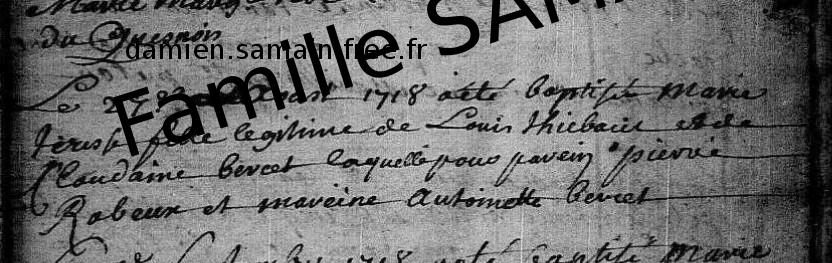 du Quesnois
damien.samain.free.fr
Famille SAMA
Le 27 1718 a été baptisé Marie
fille legitime de Louis thiebaut et de
Claudaine bercet laquelle pour parein pierre
Rabeux et mareine Antoinette bercet
1718 a été baptisé Marie